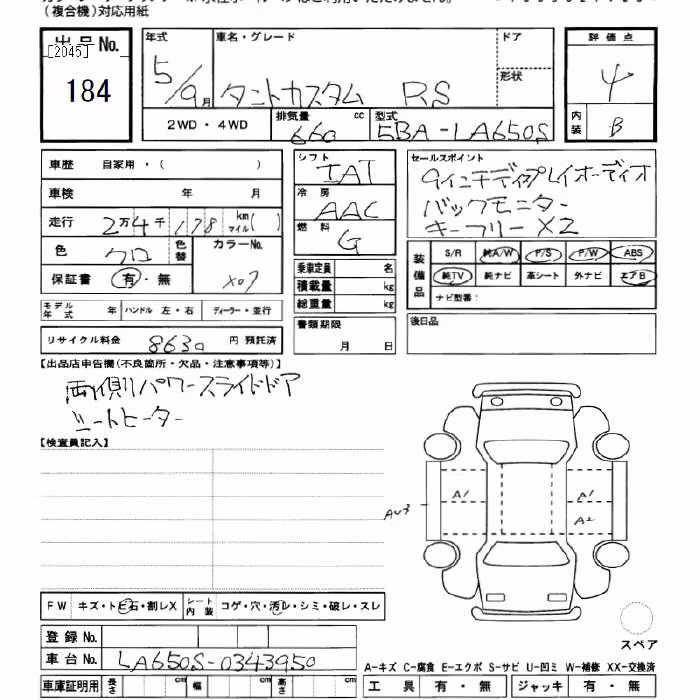 (複合機)対応用紙
出品No.
[2045]
184
年式 5/9月
車名・グレード タントカスタム RS
ドア
形状
評価点 4
内装 B
2WD・4WD
排気量 660 cc
型式 5BA-LA650S
車歴 自家用・( )
車検 年 月
走行 2万4千178 km マイル( )
色 クロ 色替
カラーNo. X07
保証書 有・無
モデル年式 年 ハンドル 左・右 ディーラー・並行
リサイクル料金 8630 円 預託済
シフト IAT
冷房 AAC
燃料 G
乗車定員 名
積載量 kg
総重量 kg
書類期限
月 日
セールスポイント
9インチディスプレイオーディオ
バックモニター
キーフリーX2
装備品
S/R 純A/W P/S P/W ABS
純TV 純ナビ 革シート 外ナビ エアB
ナビ型番:
後日品
【出品店申告欄(不良箇所・欠品・注意事項等)】
両側パワースライドドア
シートヒーター
【検査員記入】
A1
A1
A2
FW キズ・トビ石・割レX
シート内装 コゲ・穴・汚レ・シミ・破レ・スレ
登録No.
車台No. LA650S-0343950
車庫証明用 長さ cm 幅 cm 高さ cm
スペア
A-キズ C-腐食 E-エクボ S-サビ U-凹ミ W-補修 XX-交換済
工具 有・無 ジャッキ 有・無